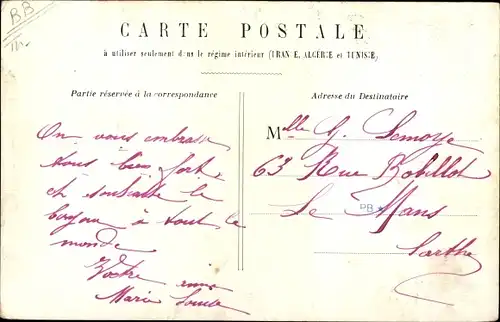 BB
CARTE POSTALE
à utiliser seulement dans le régime intérieur (FRANCE, ALGÉRIE et TUNISIE)
Partie réservée à la correspondance
Adresse du Destinataire
On vous embrasse
tous bien fort
et souhaite le
bonjour à tout le
monde
Votre
Marie
Mlle G. Lemoye
63 Rue Robillot
Le Mans
PB
Sarthe